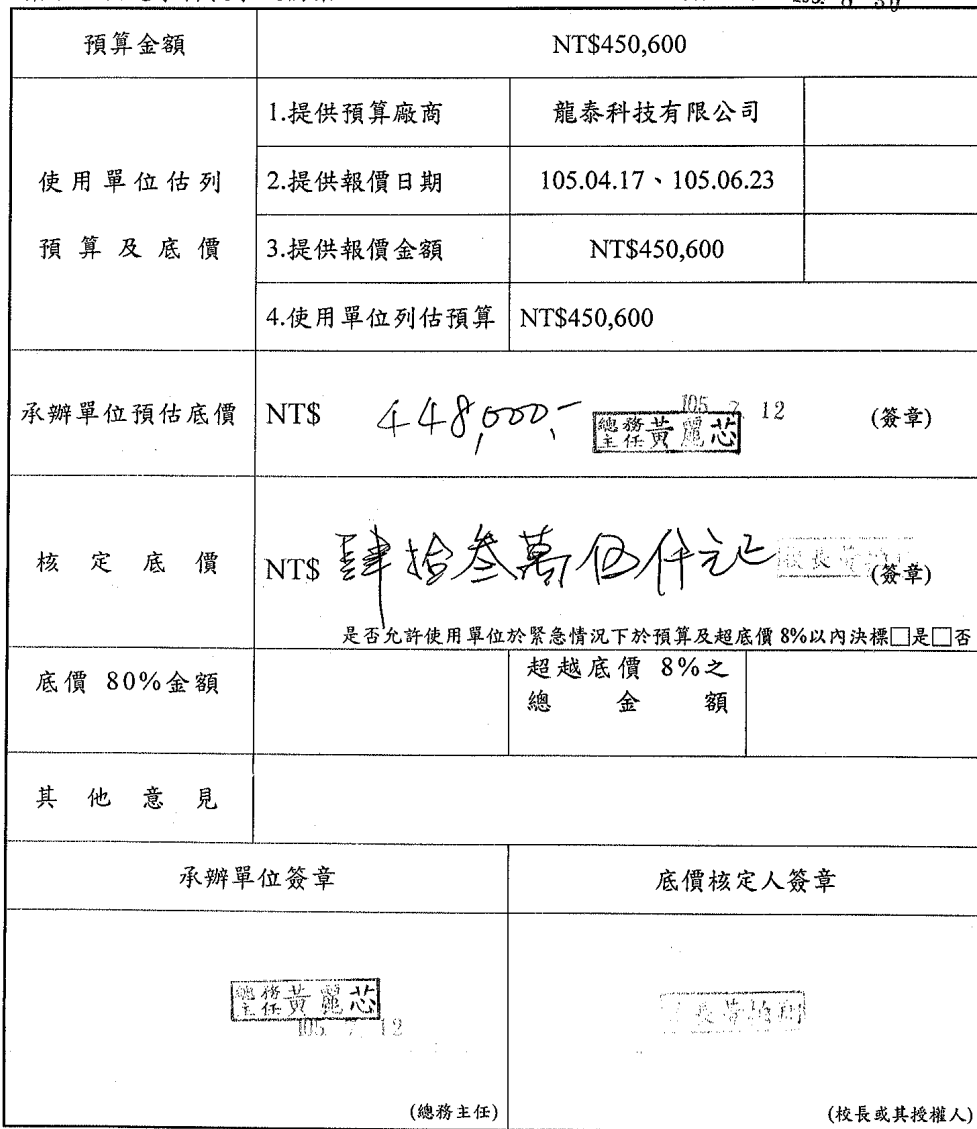 預算金額 NT$450,600
使用單位估列
預算及底價
1.提供預算廠商 龍泰科技有限公司
2.提供報價日期 105.04.17、105.06.23
3.提供報價金額 NT$450,600
4.使用單位列估預算 NT$450,600
承辦單位預估底價 NT$ 448,000.- 總務主任 黃麗芯 105. 7. 12 (簽章)
核定底價 NT$ 肆拾叁萬伍仟元正 (簽章)
是否允許使用單位於緊急情況下於預算及超底價 8%以內決標□是□否
底價 80%金額
超越底價 8%之
總金額
其他意見
承辦單位簽章 底價核定人簽章
總務主任 黃麗芯
105. 7. 12
(總務主任) (校長或其授權人)